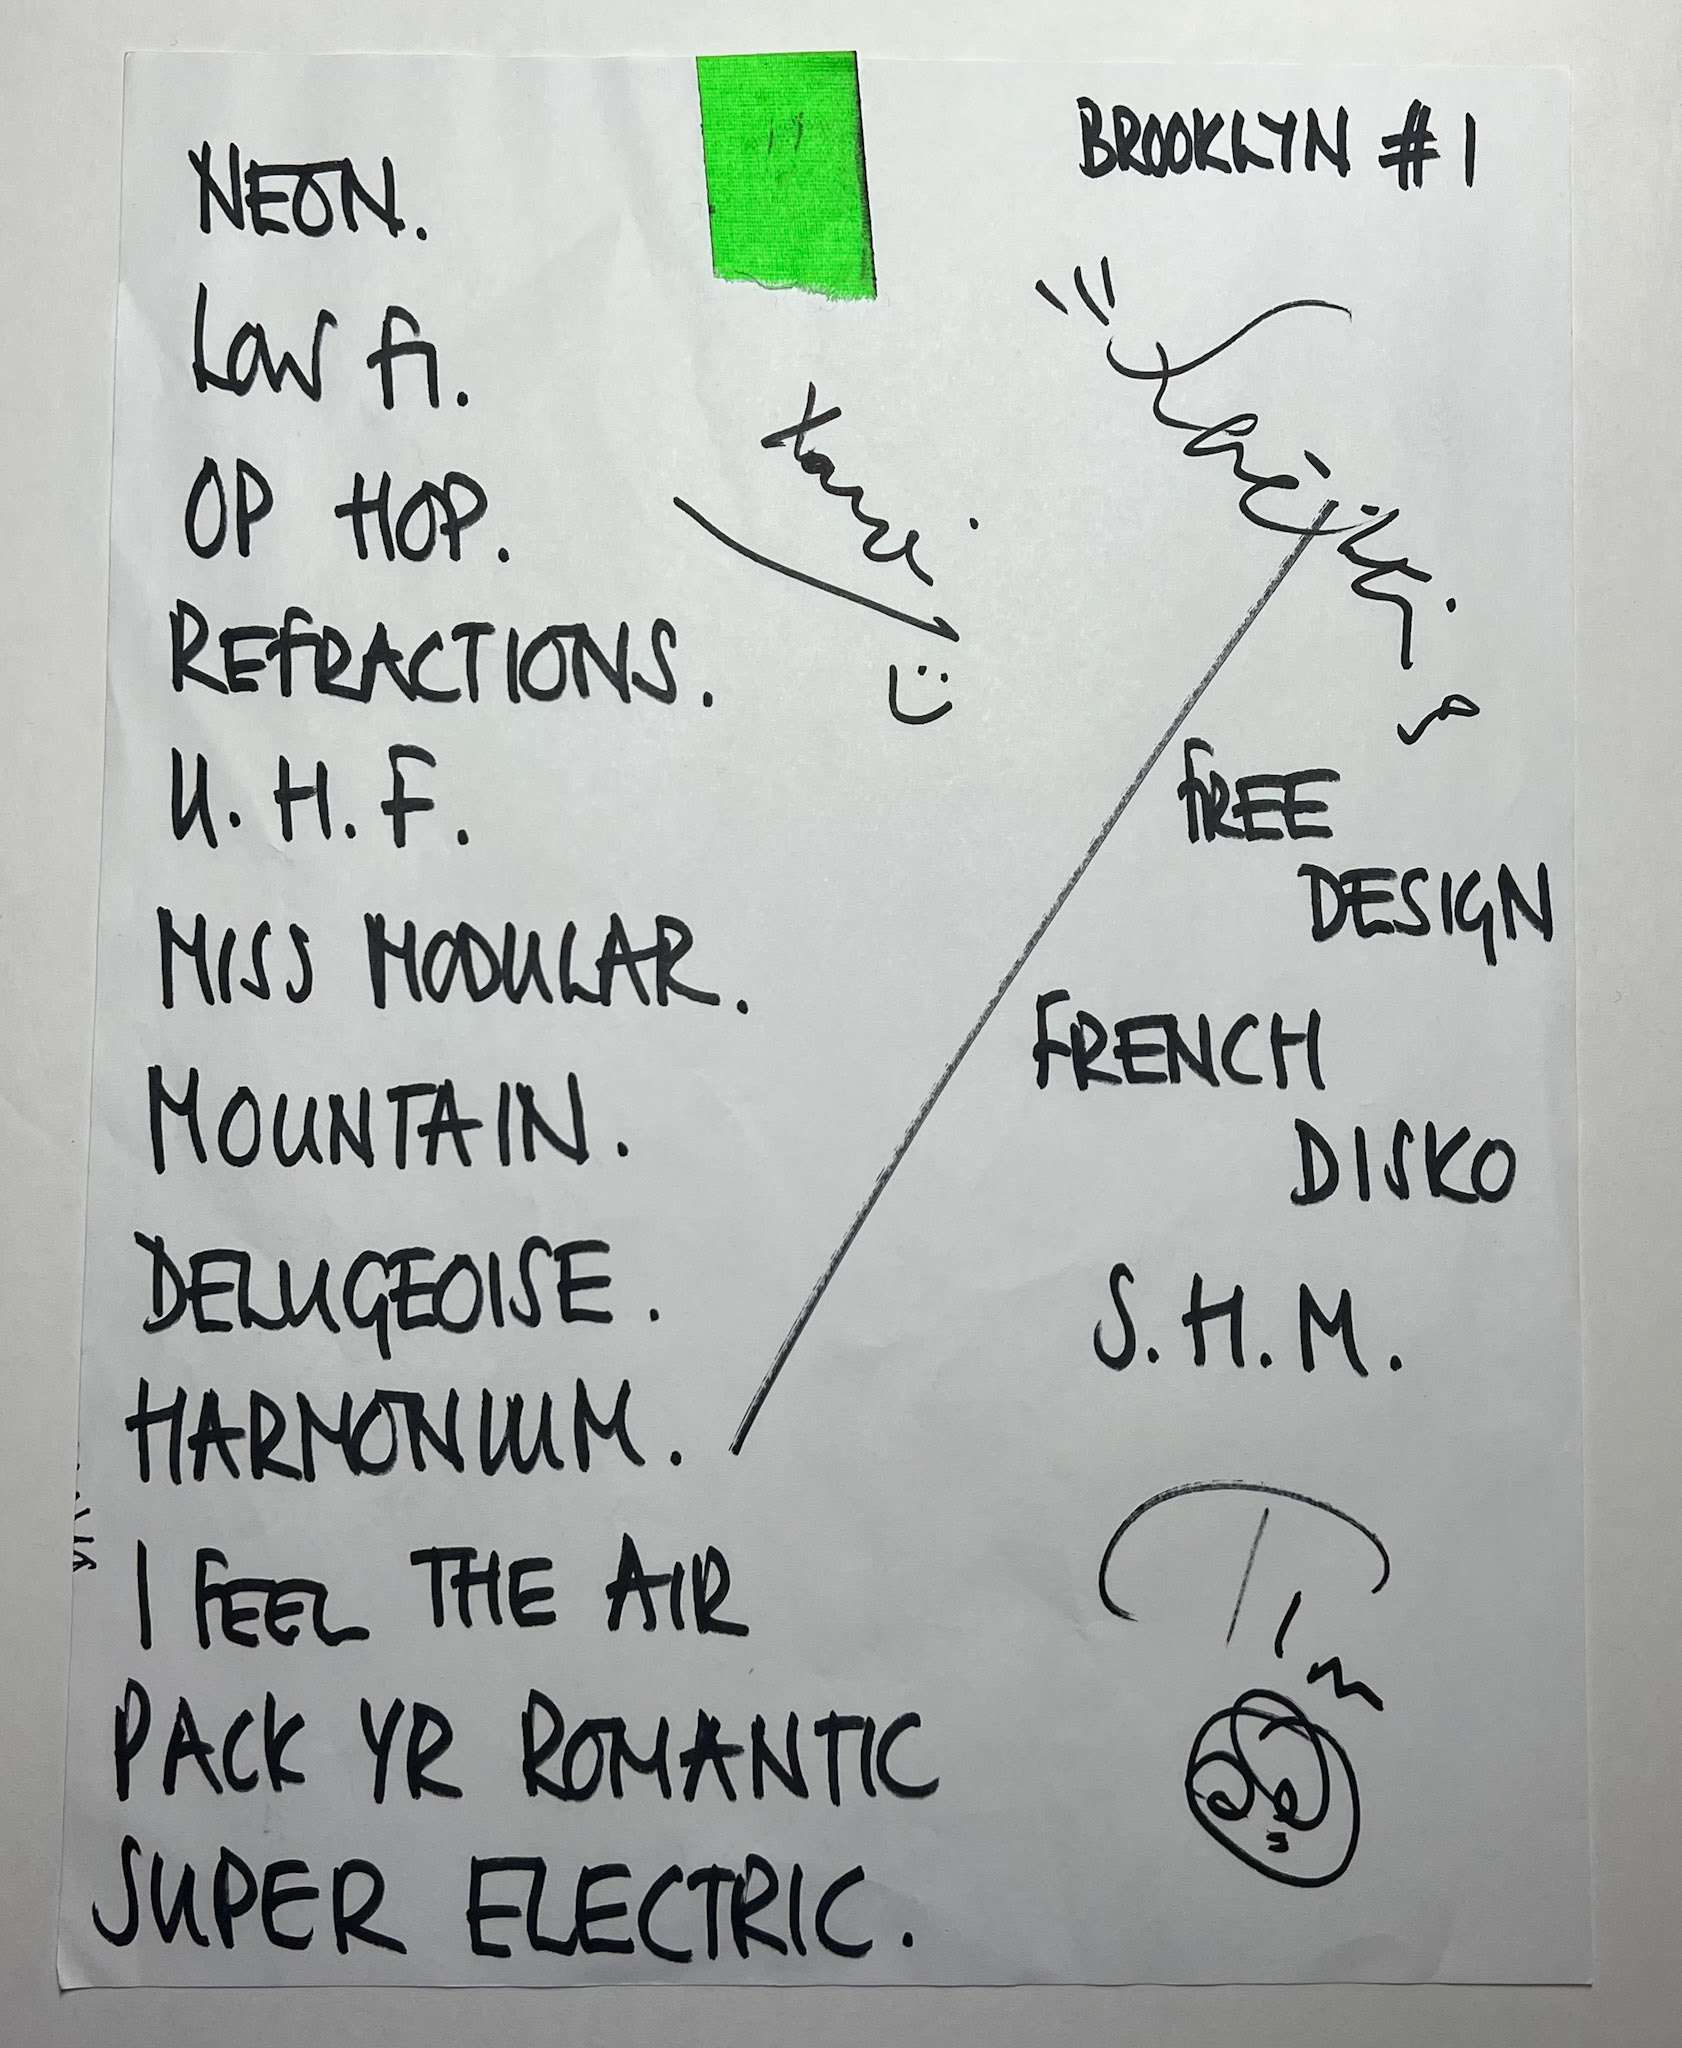 NEON.
LOW FI.
OP HOP.
REFRACTIONS.
U.H.F.
MISS MODULAR.
MOUNTAIN.
DELUGEOISE.
HARMONIUM.
I FEEL THE AIR
PACK YR ROMANTIC
SUPER ELECTRIC.
BROOKLYN #1
FREE
DESIGN
FRENCH
DISKO
S.H.M.
Tim